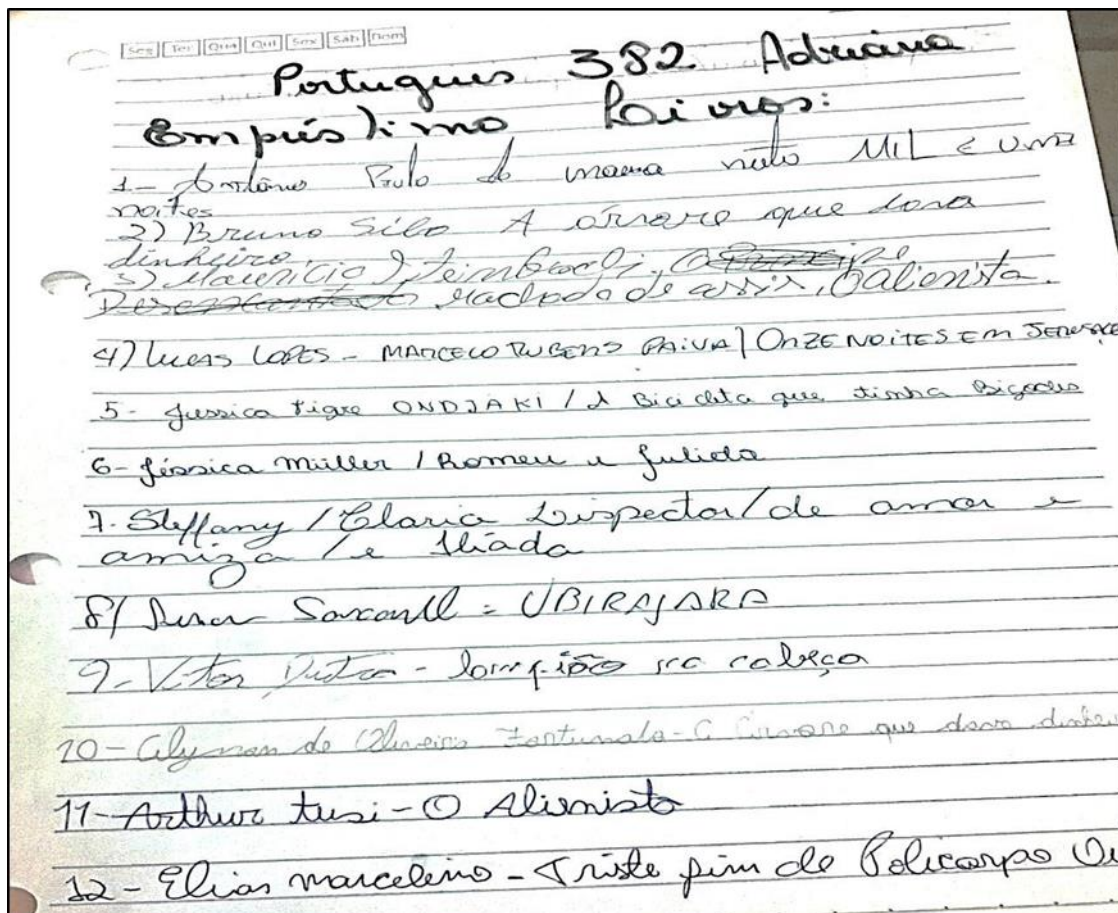 Seg Ter Qua Qui Sex Sáb Dom
Portugues 382 Adriana
Empréstimo Livros:
1- Antônio Paulo neto MIL E UMA
noites
2) Bruno Silo A árvore que dava
dinheiro.
3) Mauricio O
Machado de assis, Oalienista.
4) Lucas LOPES - MARCELO RUBENS PAIVA / ONZE NOITES EM JERUSALÉ
5- Jessica tigre ONDJAKI / A Bicicleta que tinha Bigodes
6- Jéssica Müller / Romeu e Julieta
7. Steffany / Claria Lispector / de amor e
amiza / e Ilíada
8/ = UBIRAJARA
9- Vitor Dutra - lampião na cabeça
10- de Oliveira Fortunato - A árvore que dava dinhei
11- Arthur tusi - O Alienista
12 - Elias marcelino - Triste fim de Policarpo Qu